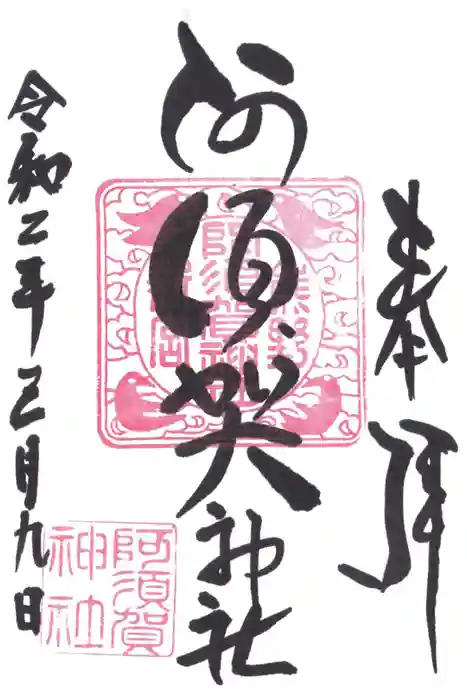 奉拝
阿須賀神社
令和二年三月九日
熊野
阿須賀神社
新宮
阿須賀
神社